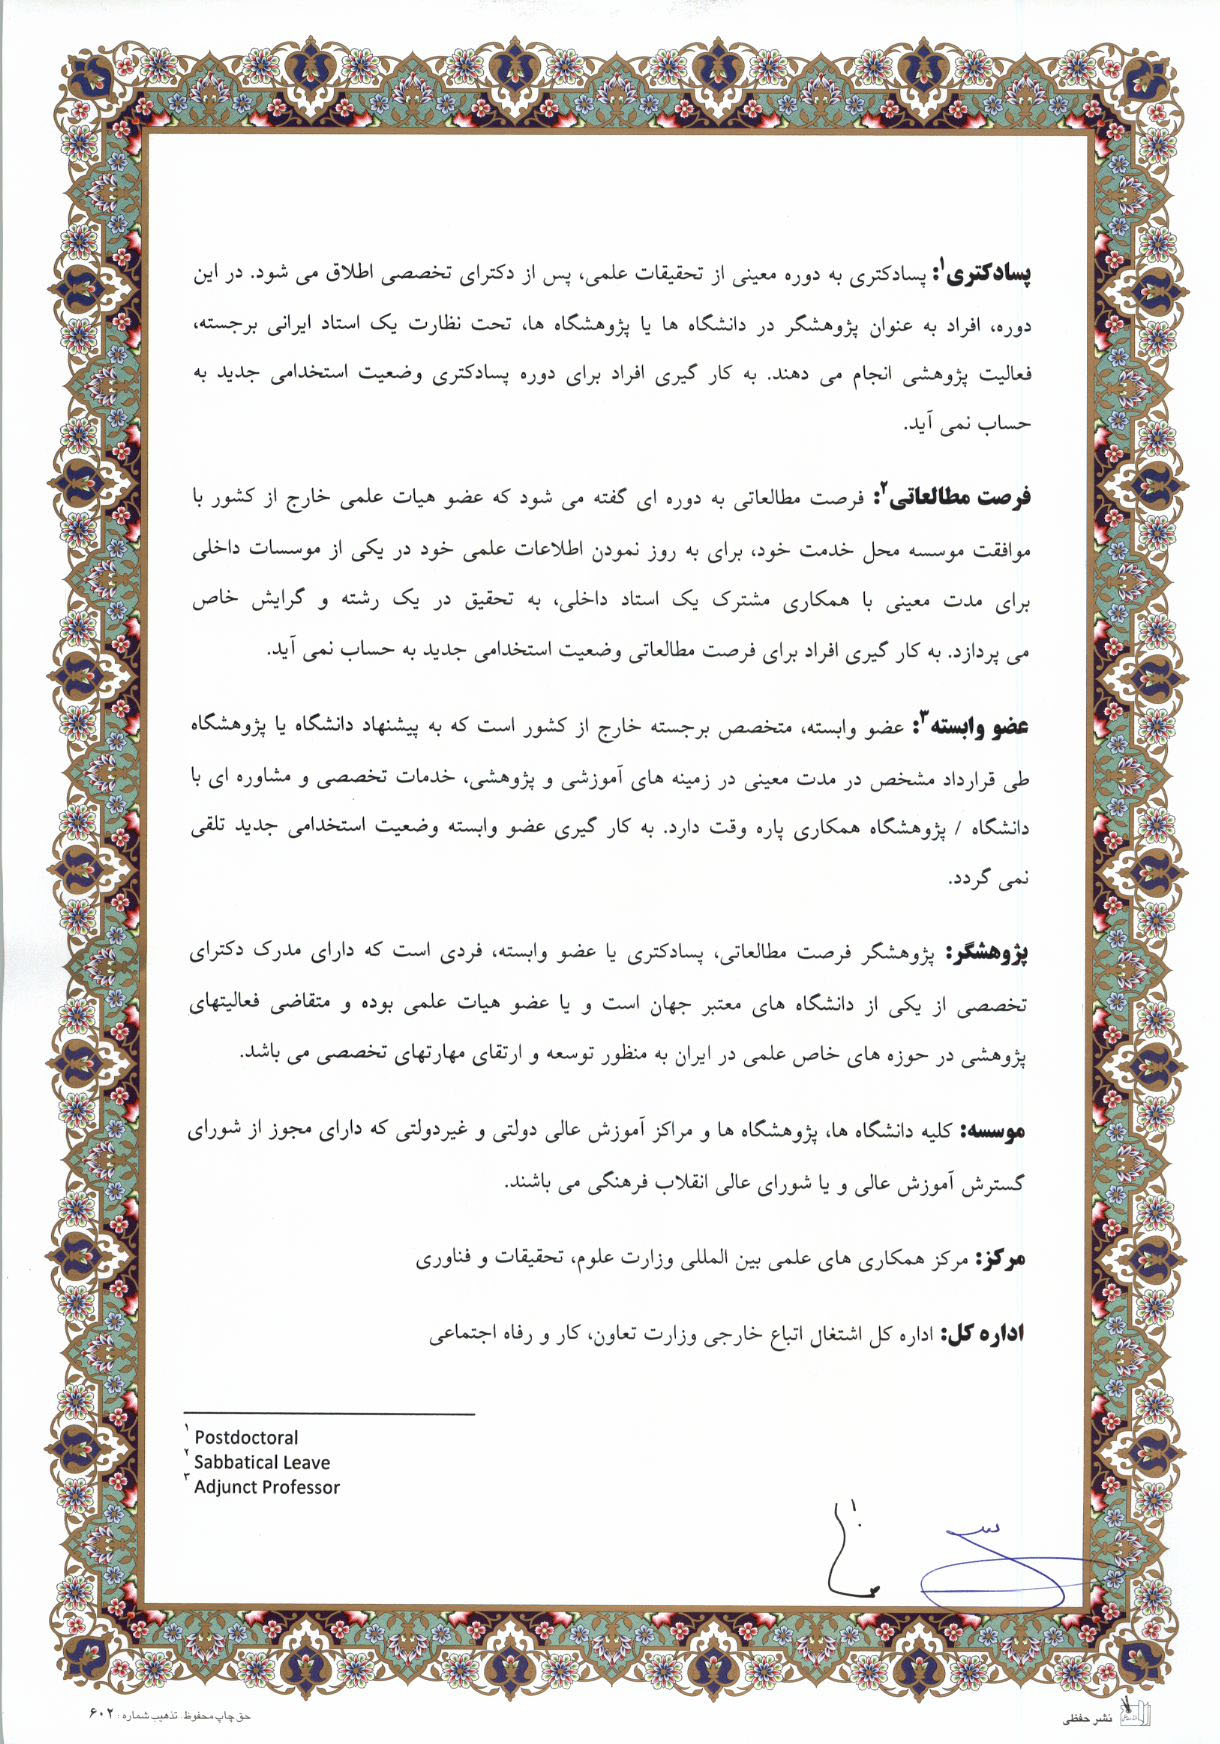 پسادکتری۱: پسادکتری به دوره معینی از تحقیقات علمی، پس از دکترای تخصصی اطلاق می شود. در این
دوره، افراد به عنوان پژوهشگر در دانشگاه ها یا پژوهشگاه ها، تحت نظارت یک استاد ایرانی برجسته،
فعالیت پژوهشی انجام می دهند. به کار گیری افراد برای دوره پسادکتری وضعیت استخدامی جدید به
حساب نمی آید.
فرصت مطالعاتی۲: فرصت مطالعاتی به دوره ای گفته می شود که عضو هیات علمی خارج از کشور با
موافقت موسسه محل خدمت خود، برای به روز نمودن اطلاعات علمی خود در یکی از موسسات داخلی
برای مدت معینی با همکاری مشترک یک استاد داخلی، به تحقیق در یک رشته و گرایش خاص
می پردازد. به کار گیری افراد برای فرصت مطالعاتی وضعیت استخدامی جدید به حساب نمی آید.
عضو وابسته۳: عضو وابسته، متخصص برجسته خارج از کشور است که به پیشنهاد دانشگاه یا پژوهشگاه
طی قرارداد مشخص در مدت معینی در زمینه های آموزشی و پژوهشی، خدمات تخصصی و مشاوره ای با
دانشگاه / پژوهشگاه همکاری پاره وقت دارد. به کار گیری عضو وابسته وضعیت استخدامی جدید تلقی
نمی گردد.
پژوهشگر: پژوهشگر فرصت مطالعاتی، پسادکتری یا عضو وابسته، فردی است که دارای مدرک دکترای
تخصصی از یکی از دانشگاه های معتبر جهان است و یا عضو هیات علمی بوده و متقاضی فعالیتهای
پژوهشی در حوزه های خاص علمی در ایران به منظور توسعه و ارتقای مهارتهای تخصصی می باشد.
موسسه: کلیه دانشگاه ها، پژوهشگاه ها و مراکز آموزش عالی دولتی و غیردولتی که دارای مجوز از شورای
گسترش آموزش عالی و یا شورای عالی انقلاب فرهنگی می باشند.
مرکز: مرکز همکاری های علمی بین المللی وزارت علوم، تحقیقات و فناوری
اداره کل: اداره کل اشتغال اتباع خارجی وزارت تعاون، کار و رفاه اجتماعی
۱ Postdoctoral
۲ Sabbatical Leave
۳ Adjunct Professor
نشر حفظی
حق چاپ محفوظ. تذهیب شماره: ۶۰۲